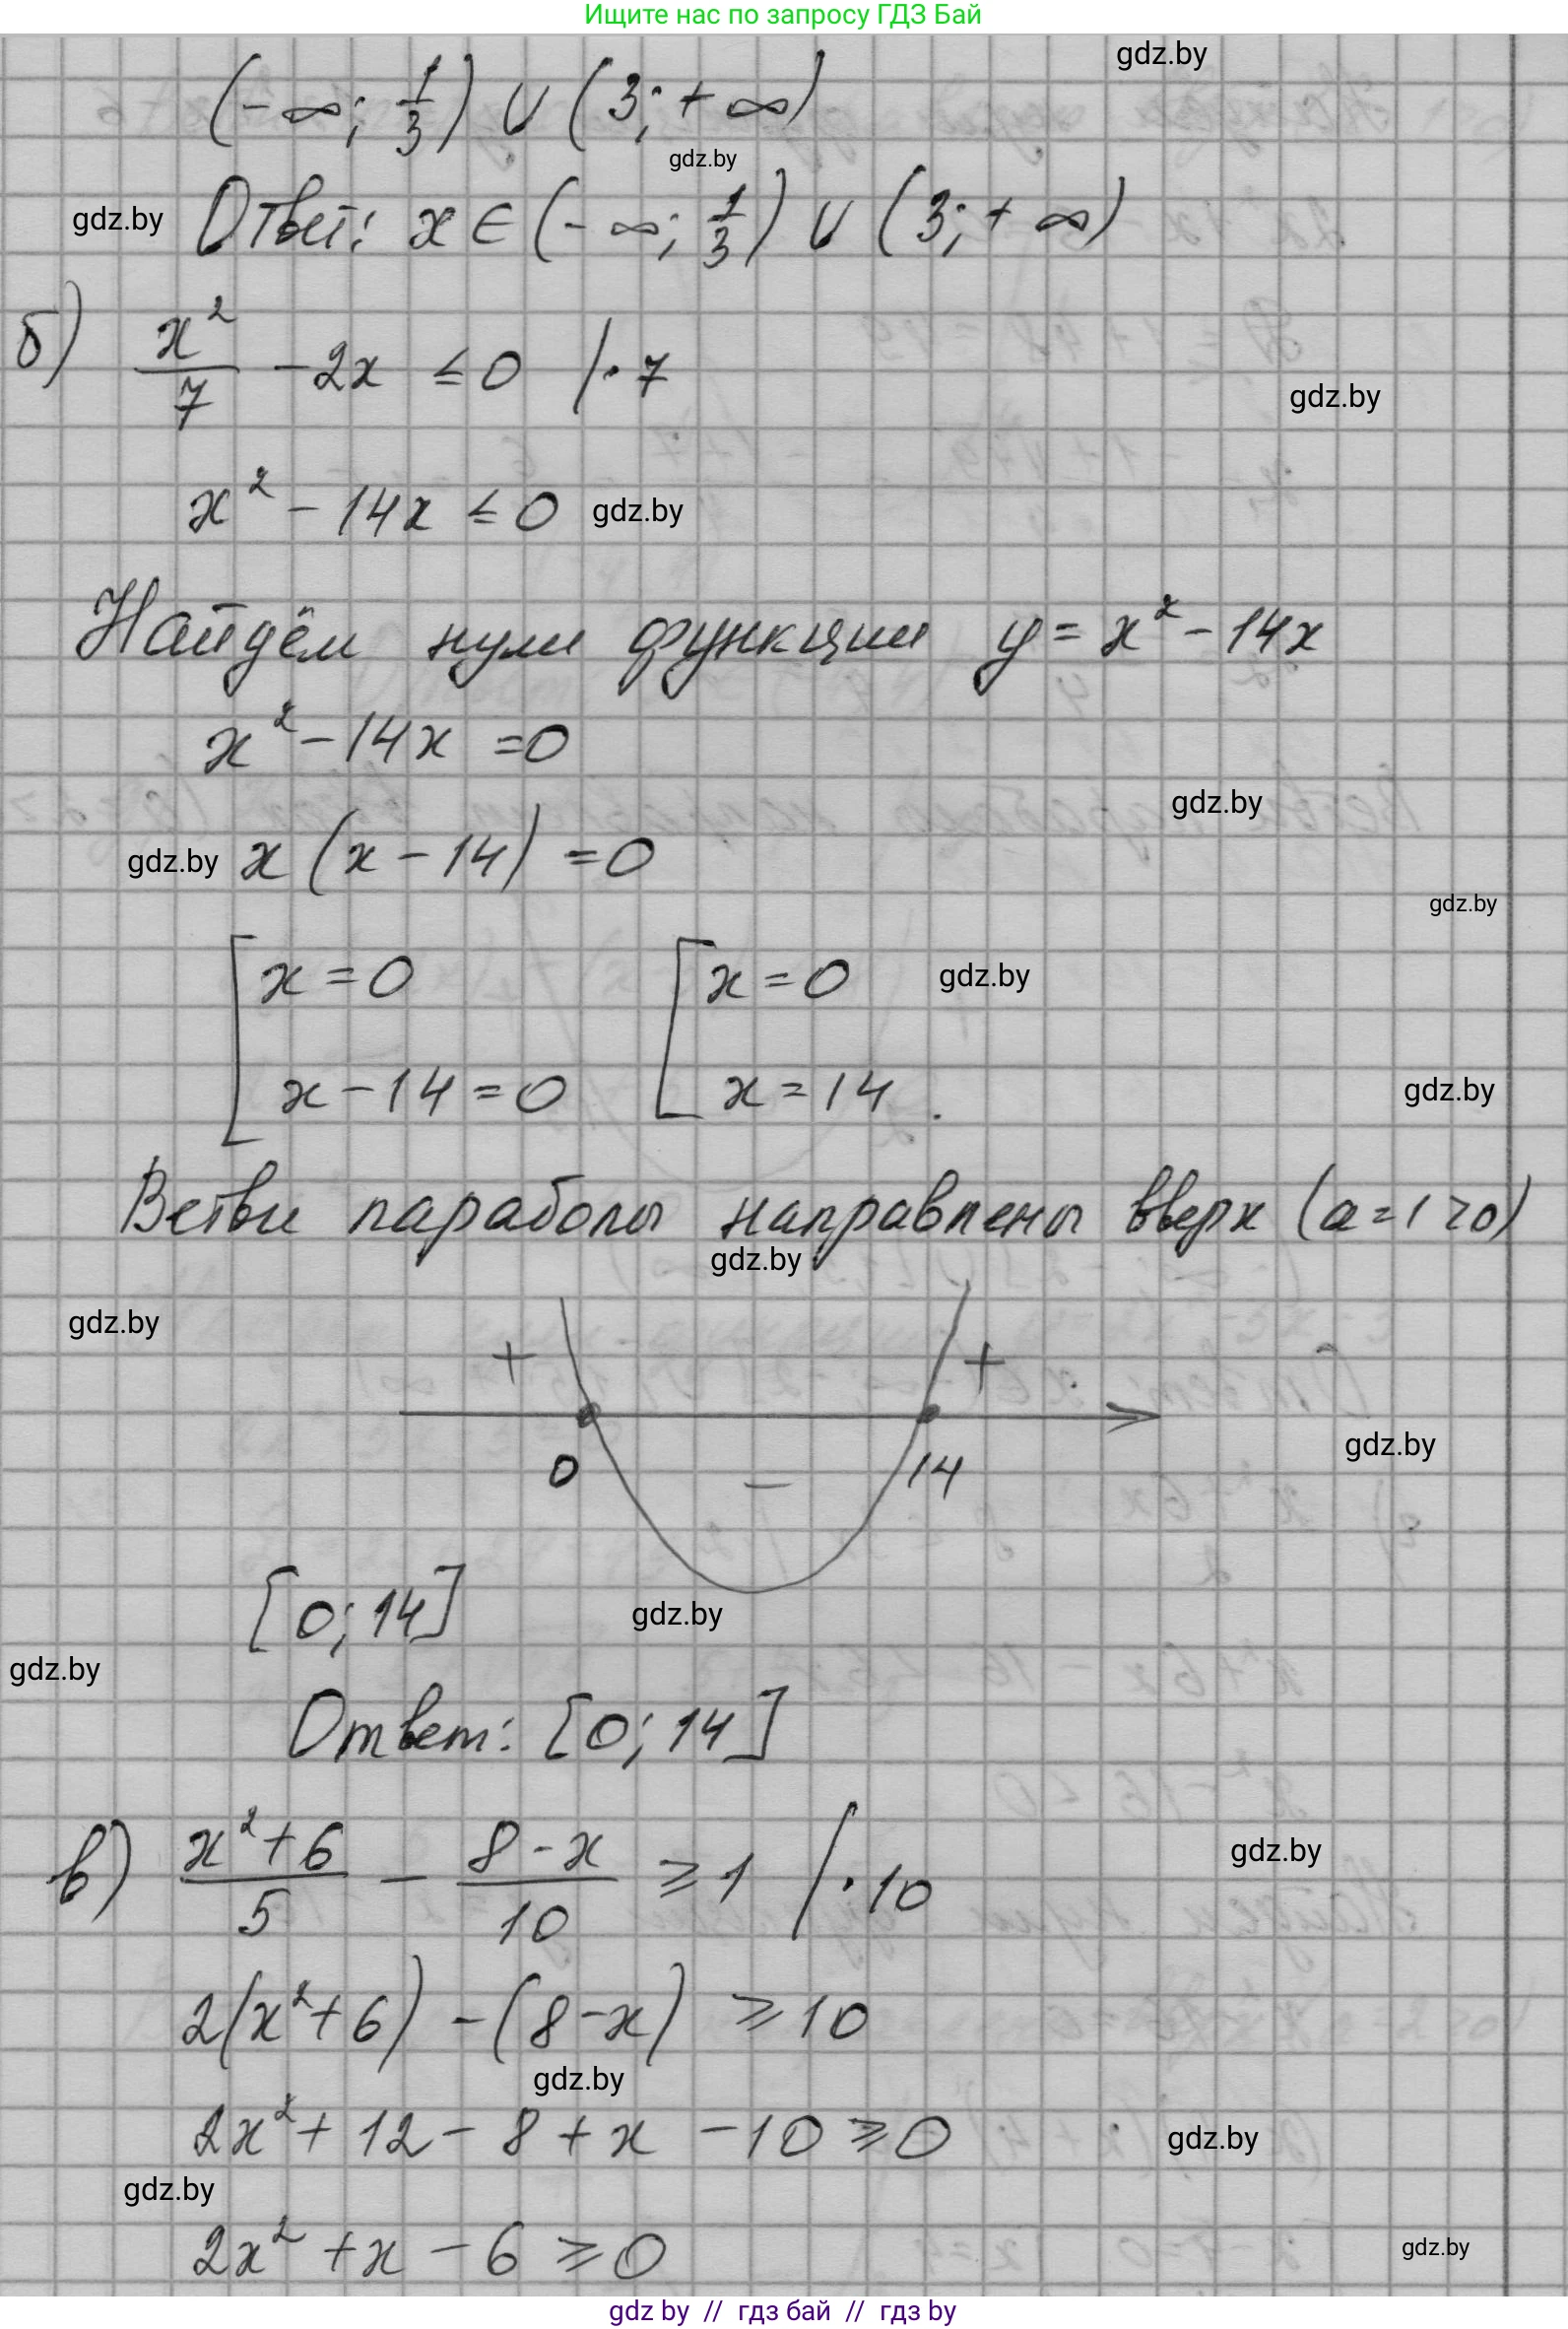 Ищите нас по запросу ГДЗ Бай
gdz.by
(-∞; 1/3) ∪ (3; +∞)
gdz.by
gdz.by Ответ: x ∈ (-∞; 1/3) ∪ (3; +∞)
б) x²/7 - 2x ≤ 0 /·7
gdz.by
x² - 14x ≤ 0 gdz.by
Найдём нули функции y = x² - 14x
x² - 14x = 0
gdz.by
gdz.by x(x - 14) = 0
gdz.by
x = 0 x = 0 gdz.by
x - 14 = 0 x = 14. gdz.by
Ветви параболы направлены вверх (a = 1 > 0)
gdz.by
gdz.by
+ +
0 - 14 gdz.by
[0; 14] gdz.by
gdz.by
Ответ: [0; 14]
в) x² + 6/5 - 8 - x/10 ≥ 1 /·10 gdz.by
2(x² + 6) - (8 - x) ≥ 10
gdz.by
2x² + 12 - 8 + x - 10 ≥ 0 gdz.by
gdz.by
2x² + x - 6 ≥ 0 gdz.by
gdz by // гдз бай // гдз by